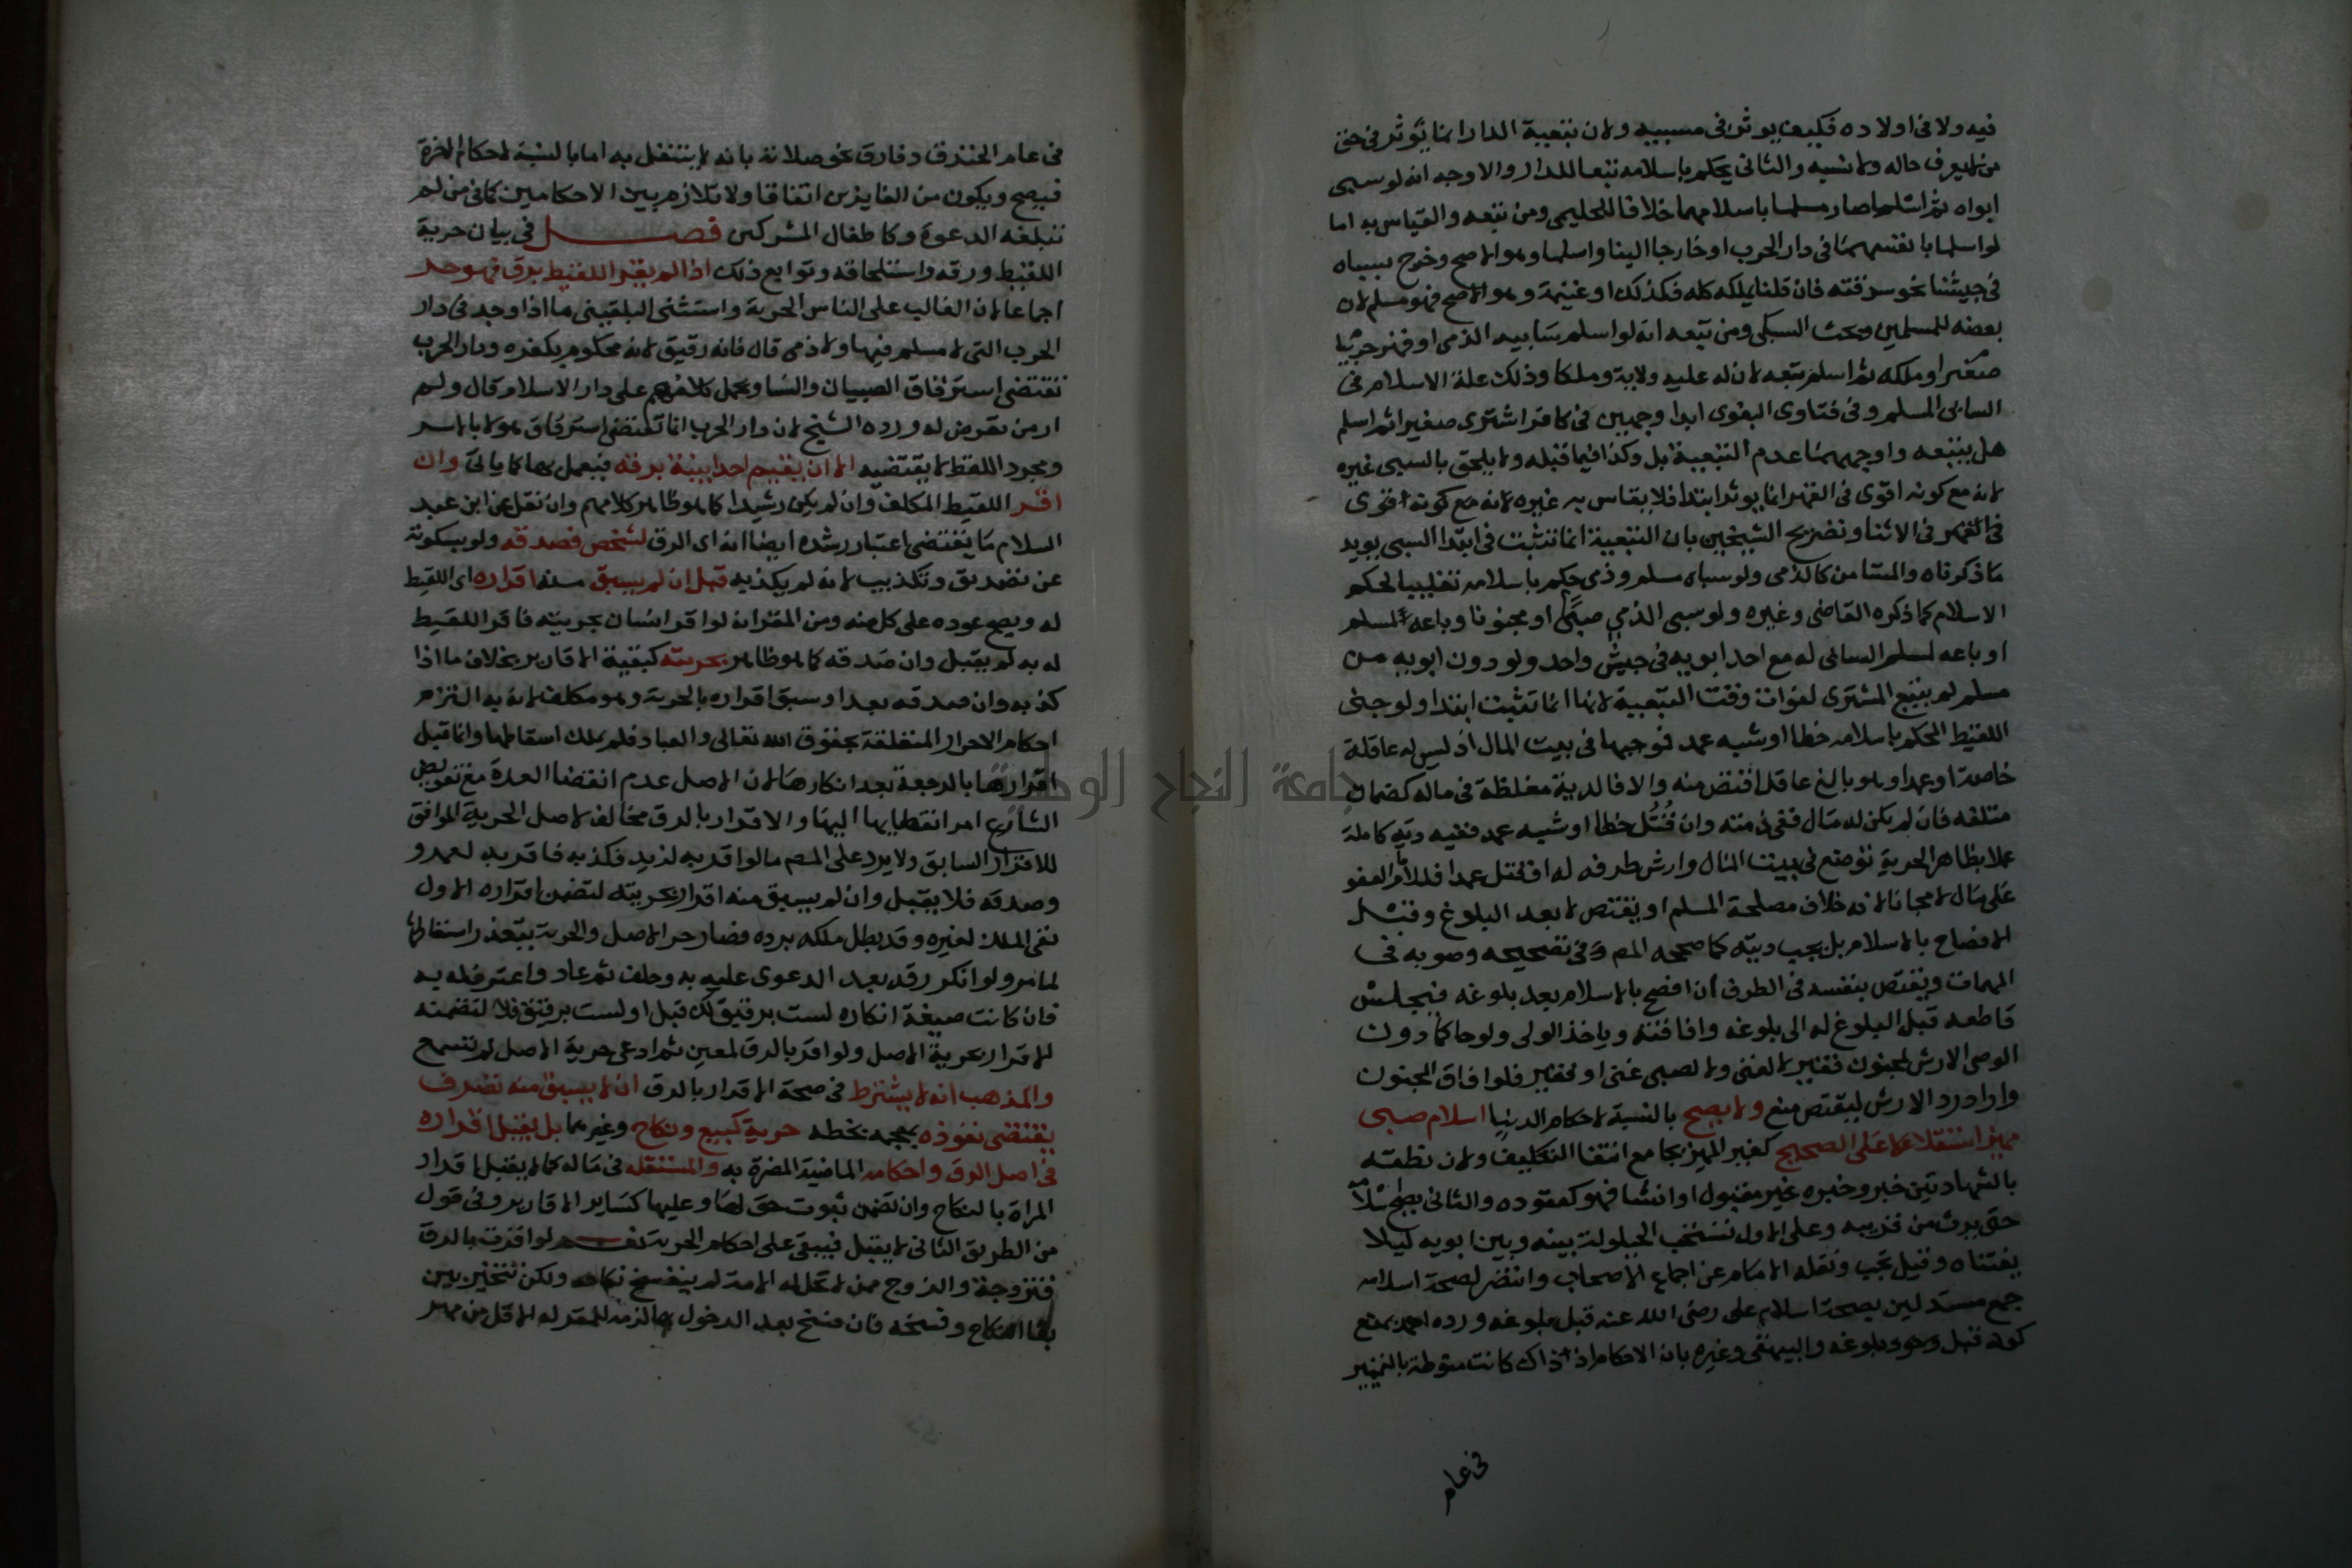 فيه ولا في اولاده فكيف يوثر في مسبيه ولان تبعية الدار انما توثر في حق
من لا يعرف حاله ولا نسبه والثاني يحكم باسلامه تبعا للدار والاوجه انه لو سبى
ابواه ثم اسلما صار مسلما باسلامهما خلافا للحليمي ومن تبعه والقياس به اما
لو اسلما بانفسهما في دار الحرب او خارجا الينا واسلما وهو الاصح وخرج بسباه
في جيشنا نحو سرقته فان قلنا يملكه كله فكذلك او غنيمة وهو الاصح فهو مسلم لان
بعضه للمسلمين وبحث السبكي ومن تبعه انه لو اسلم سابيه الذمي او قهر حربيا
صغيرا وملكه ثم اسلم تبعه لان له عليه ولاية وملكا وذلك علة الاسلام في
السابي المسلم وفي فتاوى البغوي ابدا وجهين في كافر اشترى صغيرا ثم اسلم
هل يتبعه واوجههما عدم التبعية بل وكذا فيما قبله ولا يلحق بالسبى غيره
لانه مع كونه اقوى في القهر انما يوثر ابتدا فلا يقاس به غيره لانه مع كونه اقوى
في القهر في الاثنا وتصريح الشيخين بان التبعية انما تثبت في ابتدا السبى يويد
ما ذكرناه والمستامن كالذمي ولو سباه مسلم وذمي حكم باسلامه تغليبا لحكم
الاسلام كما ذكره القاضي وغيره ولو سبى الذمي صبيا او مجنونا وباعه لمسلم
او باعه لمسلم السابي له مع احد ابويه في جيش واحد ولو دون ابويه من
مسلم لم يتبع المشتري لفوات وقت التبعية لانها انما تثبت ابتدا ولو جنى
اللقيط المحكم باسلامه خطا او شبه عمد فموجبها في بيت المال اذ ليس له عاقلة
خاصة او عمدا وهو بالغ عاقل اقتص منه والا فالدية مغلظة في ماله كضمان
متلفه فان لم يكن له مال ففي ذمته وان قتل خطا او شبه عمد ففيه دية كاملة
عملا بظاهر الحرية توضع في بيت المال وارش طرفه له او قتل عمدا فللامام العفو
على مال لا مجانا لانه خلاف مصلحة المسلم او يقتص لا بعد البلوغ وقبل
الافصاح بالاسلام بل يجب ديته كما صححه المص في تصحيحه وصوبه في
المهمات ويقتص بنفسه في الطرف ان افصح بالاسلام بعد بلوغه فيحبس
قاطعه قبل البلوغ له الى بلوغه وافاقته وياخذ الولي ولو حاكما دون
الوصي الارش لمجنون فقير لا لغني ولا لصبي غني او فقير فلو افاق المجنون
واراد رد الارش ليقتص منع ولا يصح بالنسبة لاحكام الدنيا اسلام صبي
مميز استقلالا على الصحيح كغير المميز بجامع انتفا التكليف ولان نطقه
بالشهادتين خبر وخبره غير مقبول او انشا فهو كعقوده والثاني يصح اسلامه
حتى يرث من قريبه وعلى الاول تستحب الحيلولة بينه وبين ابويه ليلا
يفتناه وقيل تجب ونقله الامام عن اجماع الاصحاب وانتصر لصحة اسلامه
جمع مستدلين بصحة اسلام علي رضي الله عنه قبل بلوغه ورده احمد بمنع
كونه قبل وجود بلوغه والبيهقي وغيره بان الاحكام اذ ذاك كانت منوطة بالتمييز
في عام
في عام الخندق وفارق نحو صلاته بانه لا يتنفل به اما بالنسبة لاحكام الاخرة
فيصح ويكون من الفايزين اتفاقا ولا تلازم بين الاحكامين كما في من لم
تبلغه الدعوة وكاطفال المشركين فصل في بيان حرية
اللقيط ورقه واستلحاقه وتوابع ذلك اذا لم يقر اللقيط برق فهو حر
اجماعا لان الغالب على الناس الحرية واستثنى البلقيني ما اذا وجد في دار
الحرب التي لا مسلم فيها ولا ذمي قال فانه رقيق لانه محكوم بكفره ودار الحرب
تقتضي استرقاق الصبيان والنسا ويحمل كلامهم على دار الاسلام قال ولم
ار من تعرض له ورده الشيخ لان دار الحرب انما تقتضي استرقاق هولا بالاسر
ومجرد اللقط لا يقتضيه الا ان يقيم احد بينة برقه فيعمل بها كما ياتي وان
اقر اللقيط المكلف وان لم يكن رشيدا كما هو ظاهر كلامهم وان نقل عن ابن عبد
السلام ما يقتضي اعتبار رشده ايضا انه اي الرق لشخص فصدقه ولو بسكوته
عن تصديق وتكذيب لانه لم يكذبه قبل ان لم يسبق منه اقراره اي اللقيط
له ويصح عوده على كل منه ومن المقر انه لو اقر انسان بحريته فاقر اللقيط
له به لم يقبل وان صدقه كما هو ظاهر بحريته كبقية الاقارير بخلاف ما اذا
كذبه وان صدقه بعد او سبق اقراره بالحرية وهو مكلف لانه به التزم
احكام الاحرار المتعلقة بحقوق الله تعالى والعباد فلم يملك اسقاطها وانما قبل
اقرارها بالرجعة بعد انكارها لان الاصل عدم انقضا العدة مع تفويض
الشارع امر انقضايها اليها والاقرار بالرق مخالف لاصل الحرية الموافق
للاقرار السابق ولا يرد على المص ما لو اقر به لزيد فكذبه فاقر به لعمرو
وصدقه فلا يقبل وان لم يسبق منه اقرار بحريته لتضمن اقراره الاول
نفي الملك لغيره وقد بطل ملكه برده فصار حر الاصل والحرية يتعذر اسقاطها
لما مر ولو انكر رقه بعد الدعوى عليه به وحلف ثم عاد واعترف له به
فان كانت صيغة انكاره لست برقيق لك قبل او لست برقيق فلا لتضمنه
الاقرار بحرية الاصل ولو اقر بالرق لمعين ثم ادعى حرية الاصل لم تسمع
والمذهب انه لا يشترط في صحة الاقرار بالرق ان لا يسبق منه تصرف
يقتضي نفوذه بعجمه بخطه حرية كبيع ونكاح وغيرهما بل يقبل اقراره
في اصل الرق واحكامه الماضية المضرة به والمستقبله في ماله كما لا يقبل اقرار
المراة بالنكاح وان تضمن ثبوت حق لها وعليها كساير الاقارير وفي قول
من الطريق الثاني لا يقبل فيبقى على احكام الحرية نعم لو اقرت بالرق
متزوجة والزوج ممن لا تحل له الامة لم ينفسخ نكاحه ولكن تتخير بين
بقا النكاح وفسخه فان فسخ بعد الدخول بها لزمه للمقر له الاقل من مهر
جامعة النجاح الوطنية